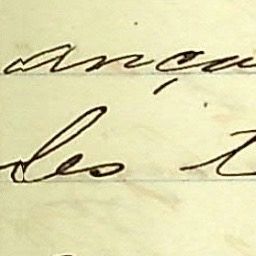 ança
les t